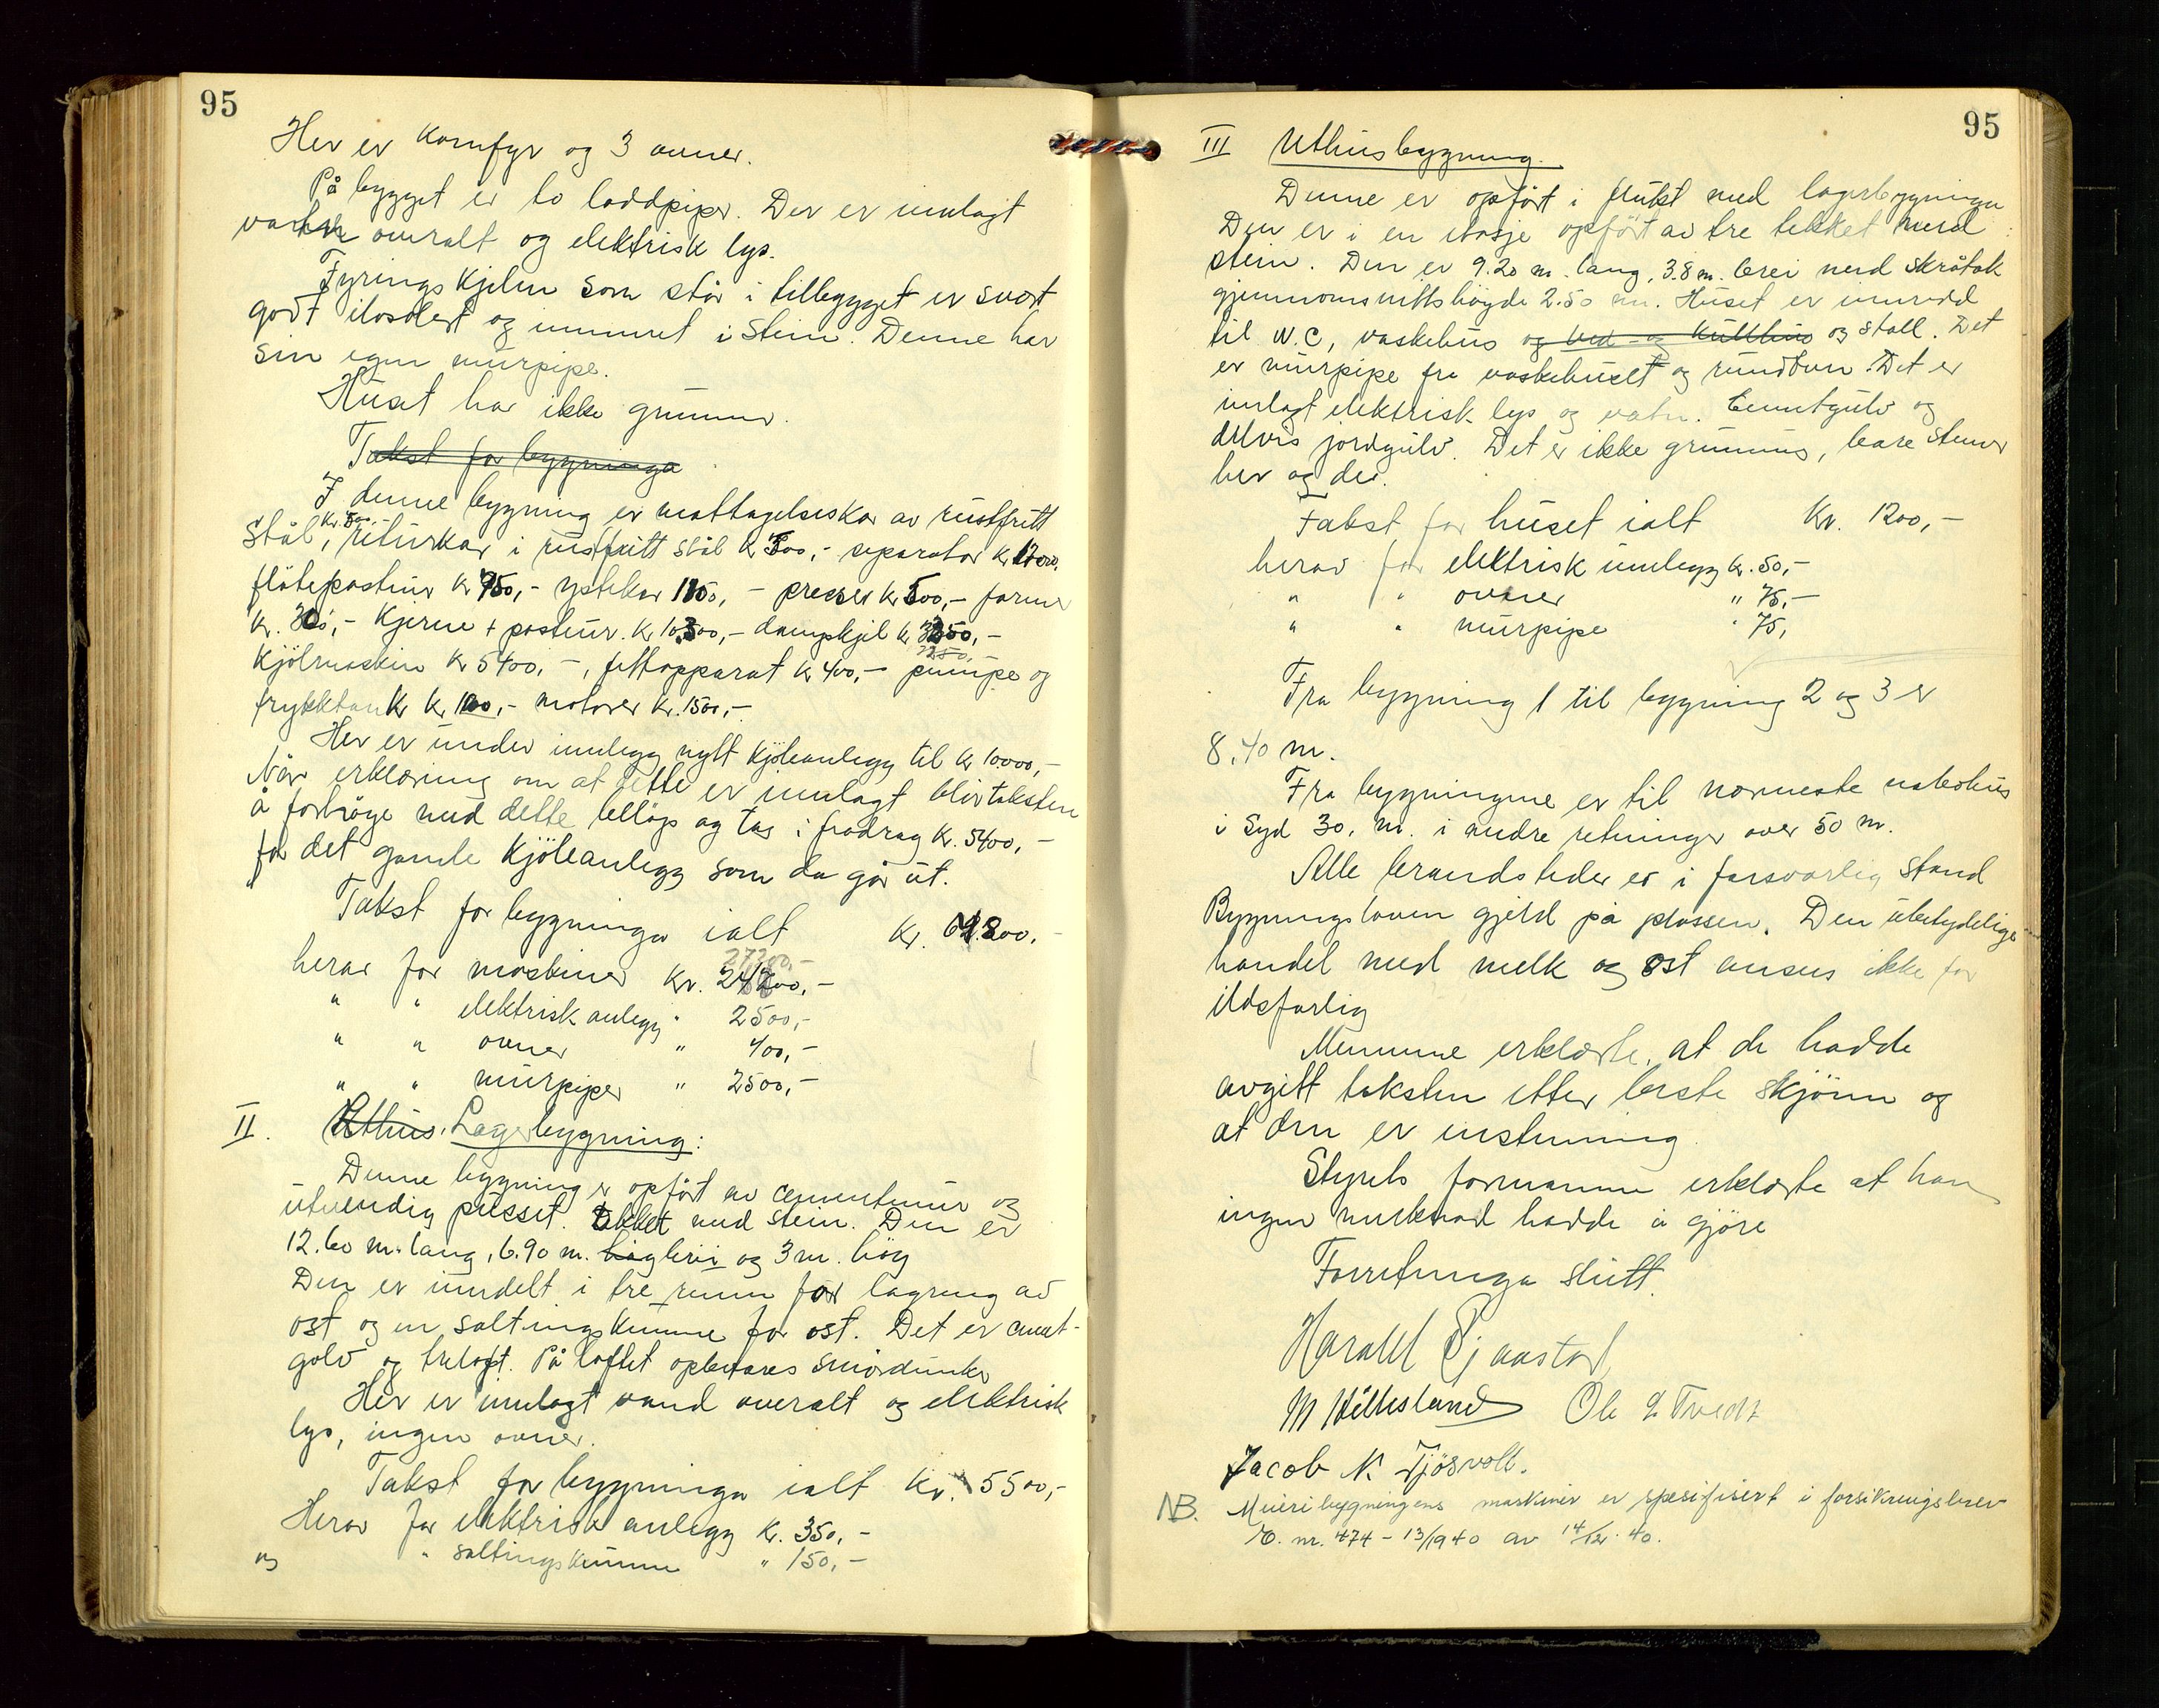 95
Her er komfyr og 3 ovner.
På bygget er to loddpiper. Der er innlagt
vatn overalt og elektrisk lys.
Fyringskjelen som står i tilbygget er svært
godt isolert og innmuret i stein. Denne har
sin egen murpipe.
Huset har ikke grunnmur.
Takst for bygninga
I denne bygning er mottagelseskar av rustfritt
stål kr. 500,-, returkar i rustfritt stål kr 500,- separator kr 1700,-
fløtepasteur kr 950,- ystekar 1150,- - presser kr 500,- former
kr. 300,- kjerne + pasteur. kr 10300,- dampkjel kr 3250,-
kjølmaskin kr 5400,-, fettapparat kr 400,- pumpe og
trykktank kr 100,- motorer kr. 1500,-
Her er under innlegg nytt kjøleanlegg til kr 10000,-
Når erklæring om at dette er innlagt blir taksten
å forhøge med dette belløp og tas i fradrag kr. 5400,-
for det gamle kjøleanlegg som da går ut.
Takst for bygninga ialt kr. 64800.-
27300,-
herav for maskiner kr. 24200,-
" " elektrisk anlegg " 2500,-
" " ovner " 400,-
" " murpiper " 2500,-
II. Uthus. Lagerbygning:
Denne bygning er opført av cementmur og
utvendig pusset. Tekket med stein. Den er
12.60 m. lang, 6.90 m. høg brei og 3 m. høg
Den er inndelt i tre rum for lagring av
ost og en saltingskumme for ost. Det er cement-
golv og treloft. På loftet opbevares smørdunker
Her er innlagt vand overalt og elektrisk
lys, ingen ovner.
Takst for bygninga ialt kr. 5500,-
Herav for elektrisk anlegg kr. 350,-
og " saltingskumme " 150,-
95
III Uthusbygning.
Denne er opført i flukt med lagerbygninga
Den er i en etasje opført av tre tekket med
stein. Den er 9.20 m. lang, 3.8 m. brei med skråtak
gjennomsnittshøgde 2.50 m. Huset er innredd
til W.C, vaskehus og ved- og kullhus og stall. Det
er murpipe fra vaskehuset og rundovn. Det er
innlagt elektrisk lys og vatn. Cementgulv og
delvis jordgulv. Det er ikke grunnmur, bare steiner
her og der.
Takst for huset ialt Kr. 1200,-
herav for elektrisk innlegg kr. 50,-
" " ovner " 75,-
" " murpipe " 75,
Fra bygning 1 til bygning 2 og 3 er
8,40 m.
Fra bygningene er til nærmeste nabohus
i Syd 30. m. i andre retninger over 50 m.
Alle brandsteder er i forsvarlig stand
Bygningsloven gjeld på plassen. Den ubetydelige
handel med melk og ost anses ikke for
ildsfarlig
Mennene erklærte, at de hadde
avgitt taksten etter beste skjønn og
at den er enstemmig.
Styrets formann erklærte at han
ingen merknad hadde å gjøre
Forretninga slutt.
Harald Tjaastad
M Hillesland Ole G Tvedt
Jacob N. Tjøsvoll.
NB. Meieribygningens maskiner er spesifisert i forsikringsbrev
E. nr. 474 - 13/1940 av 14/12. 40.